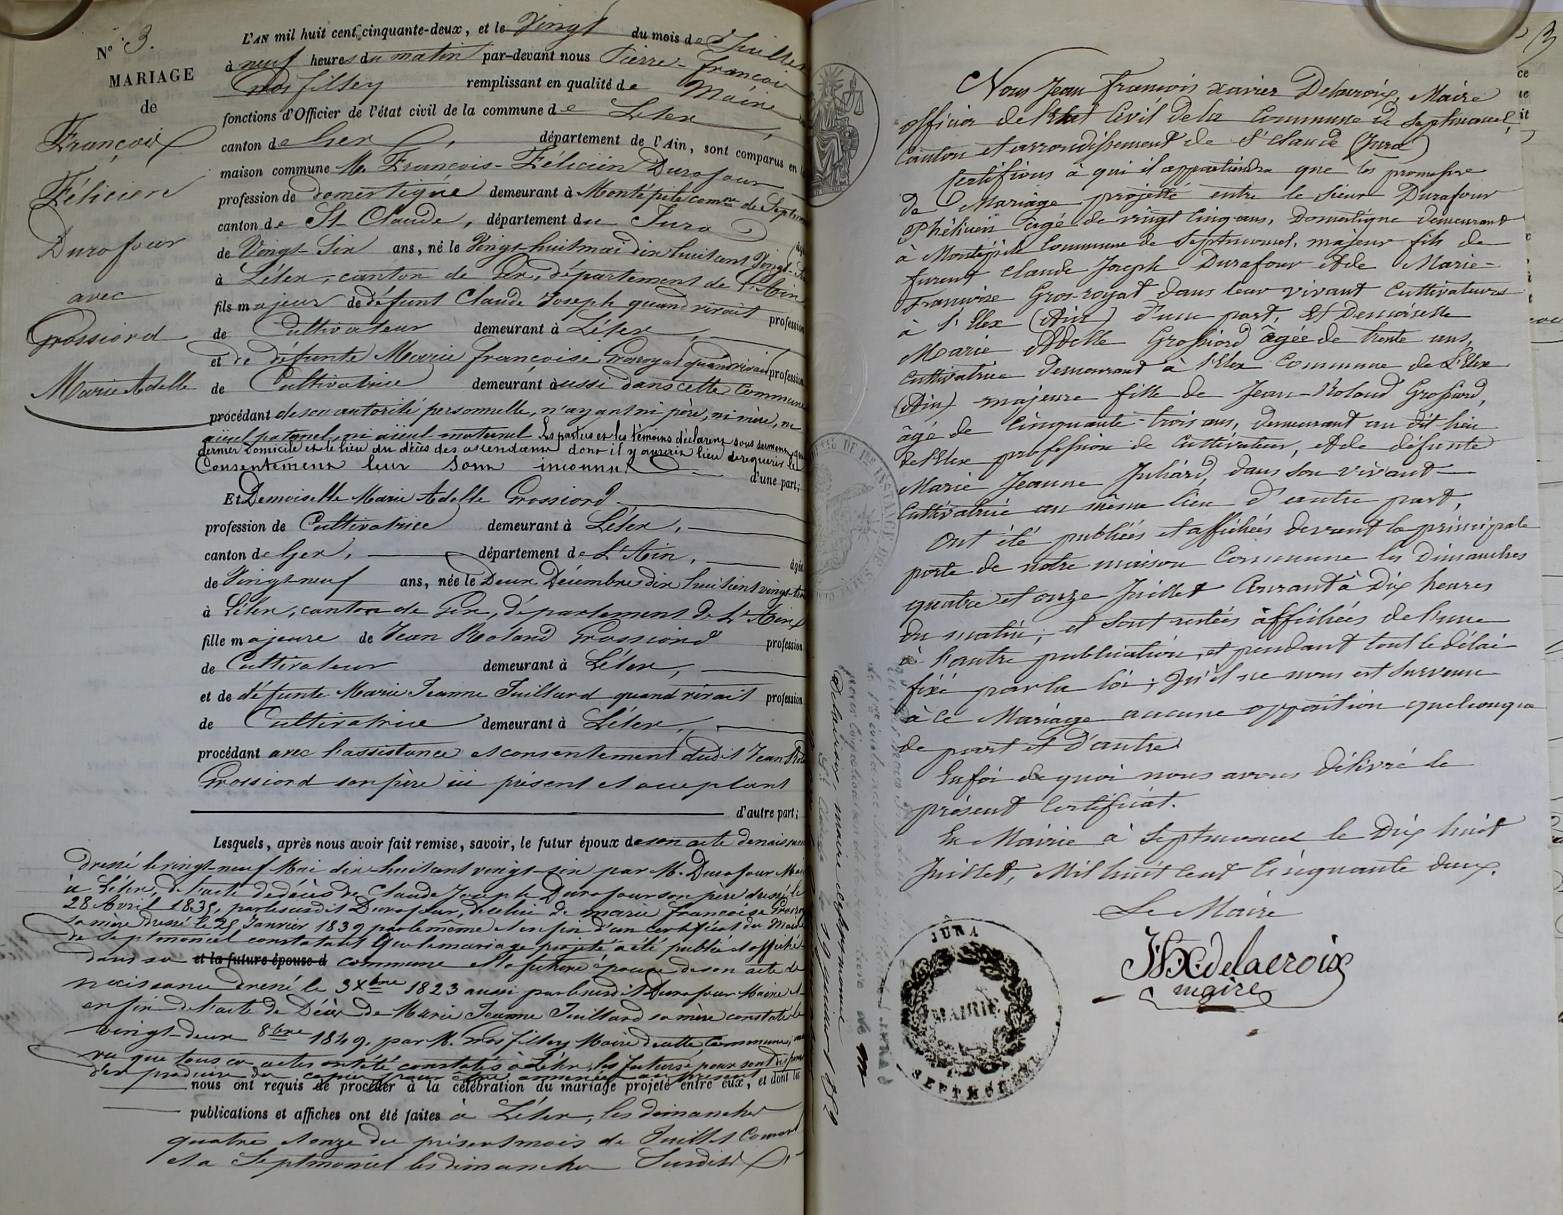 N° 3.
MARIAGE
de
François
Félicien
Durafour
avec
Grossiord
Marie Adelle
L'AN mil huit cent cinquante-deux, et le Vingt du mois de Juillet
à neuf heures du matin par-devant nous Pierre-François
Grosfilley remplissant en qualité de Maire
fonctions d'Officier de l'état civil de la commune de Lélex,
canton de Gex, département de l'Ain, sont comparus en la
maison commune M. François-Félicien Durafour
profession de domestique demeurant à Montépile comne de Septmoncel
canton de St Claude, département du Jura
de Vingt-Six ans, né le Vingt-huit mai dix huit cent Vingt-six
à Lélex, canton de Gex, département de l'Ain
fils majeur de défunt Claude Joseph quand vivait profession
de Cultivateur demeurant à Lélex,
et de défunte Marie françoise Grosroyat quand vivait profession
de Cultivatrice demeurant aussi dans cette Commune
procédant de son autorité personnelle, n'ayant ni père, ni mère, ni
aïeul paternel, ni aïeul maternel Les parties et les témoins déclarent sous serment que
dernier domicile et le lieu du décès des ascendans dont il y aurait lieu de requérir le
Consentement leur sont inconnus
d'une part;
Et Demoiselle Marie Adelle Grossiord
profession de Cultivatrice demeurant à Lélex,
canton de Gex, département de L'Ain, âgée
de Vingt-neuf ans, née le Deux Décembre dix huit cent vingt-trois
à Lélex, canton de Gex, département de L'Ain
fille majeure de Jean Roland Grossiord profession
de Cultivateur demeurant à Lélex,
et de défunte Marie Jeanne Juillard quand vivait profession
de Cultivatrice demeurant à Lélex,
procédant avec l'assistance et consentement dudit Jean Roland
Grossiord son père ici présent et acceptant
d'autre part;
Lesquels, après nous avoir fait remise, savoir, le futur époux de son acte de naissance
dressé le vingt-neuf Mai dix huit cent vingt-six par M. Durafour Maire
à Lélex, de l'acte de décès de Claude Joseph Durafour son père dressé le
28 Avril 1835, par le susdit Durafour, de celui de marie françoise Grosroyat
sa mère dressé le 25 Janvier 1839 par le même et enfin d'un certificat du Maire
de Septmoncel constatant que le mariage projeté a été publié et affiché
dans sa et la future épouse d commune et la future épouse de son acte de
naissance dressé le 3 Xbre 1823 aussi par le susdit Durafour Maire et
enfin de l'acte de Décès de Marie Jeanne Juillard sa mère constaté le
vingt-deux 8bre 1849, par M. Grosfilley Maire de cette Commune,
vu que tous ces actes ont été constatés à Lélex, les futurs pour
d'en produire des copies pour être annexées au présent
nous ont requis de procéder à la célébration du mariage projeté entre eux, et dont les
publications et affiches ont été faites à Lélex, les dimanches
quatre et onze du présent mois de Juillet Courant
et à Septmoncel les dimanches Susdits
Nous Jean françois xavier Delacroix, Maire
officier de l'Etat Civil de la Commune de Septmoncel,
Canton et arrondissement de St Claude (Jura)
Certifions à qui il appartiendra que les promesses
de Mariage projetté entre le Sieur Durafour
Phélicien âgé de vingt cinq ans, Domestique demeurant
à Montépile Commune de Septmoncel, majeur fils de
furent Claude Joseph Durafour et de Marie
Françoise Gros-royat dans leur vivant Cultivateurs
à l'Elex (Ain) d'une part, Et Demoiselle
Marie Adelle Grossiord âgée de trente ans,
Cultivatrice Demeurant à l'Elex Commune de l'Elex
(Ain) majeure fille de Jean-Roland Grossiord,
âgé de Cinquante trois ans, demeurant au dit lieu
de l'Elex profession de Cultivateur, et de défunte
Marie Jeanne Juliard, dans son vivant
Cultivatrice au même lieu d'autre part,
Ont été publiées et affichées devant la principale
porte de notre maison Commune les Dimanches
quatre et onze Juillet Courant à Dix heures
du matin, et sont restées affichées de l'une
à l'autre publication, et pendant tout le délai
fixé par la loi; qu'il ne nous est survenu
à ce Mariage aucune opposition quelconque
de part et d'autre.
En foi de quoi nous avons délivré le
présent Certificat.
En Mairie à Septmoncel le Dix huit
Juillet, Mil huit cent Cinquante deux.
Le Maire
JFX. delacroix
maire
JURA
MAIRIE
SEPTMONCEL